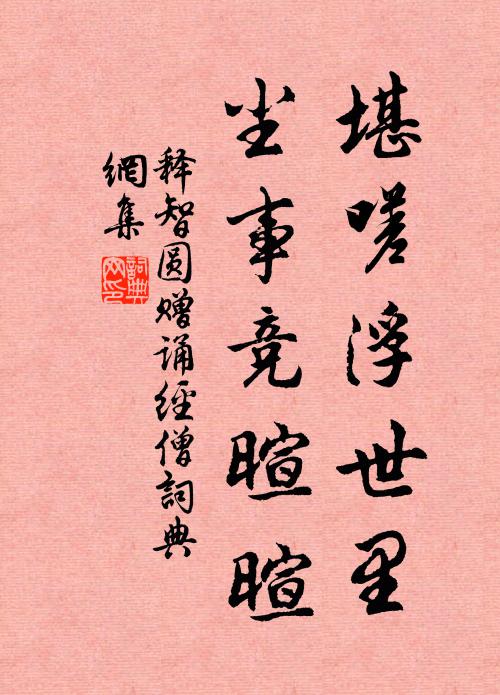 堪嗟浮世里
尘事竞暄暄
释智圆赠诵经僧詞典
網集
詞典网印